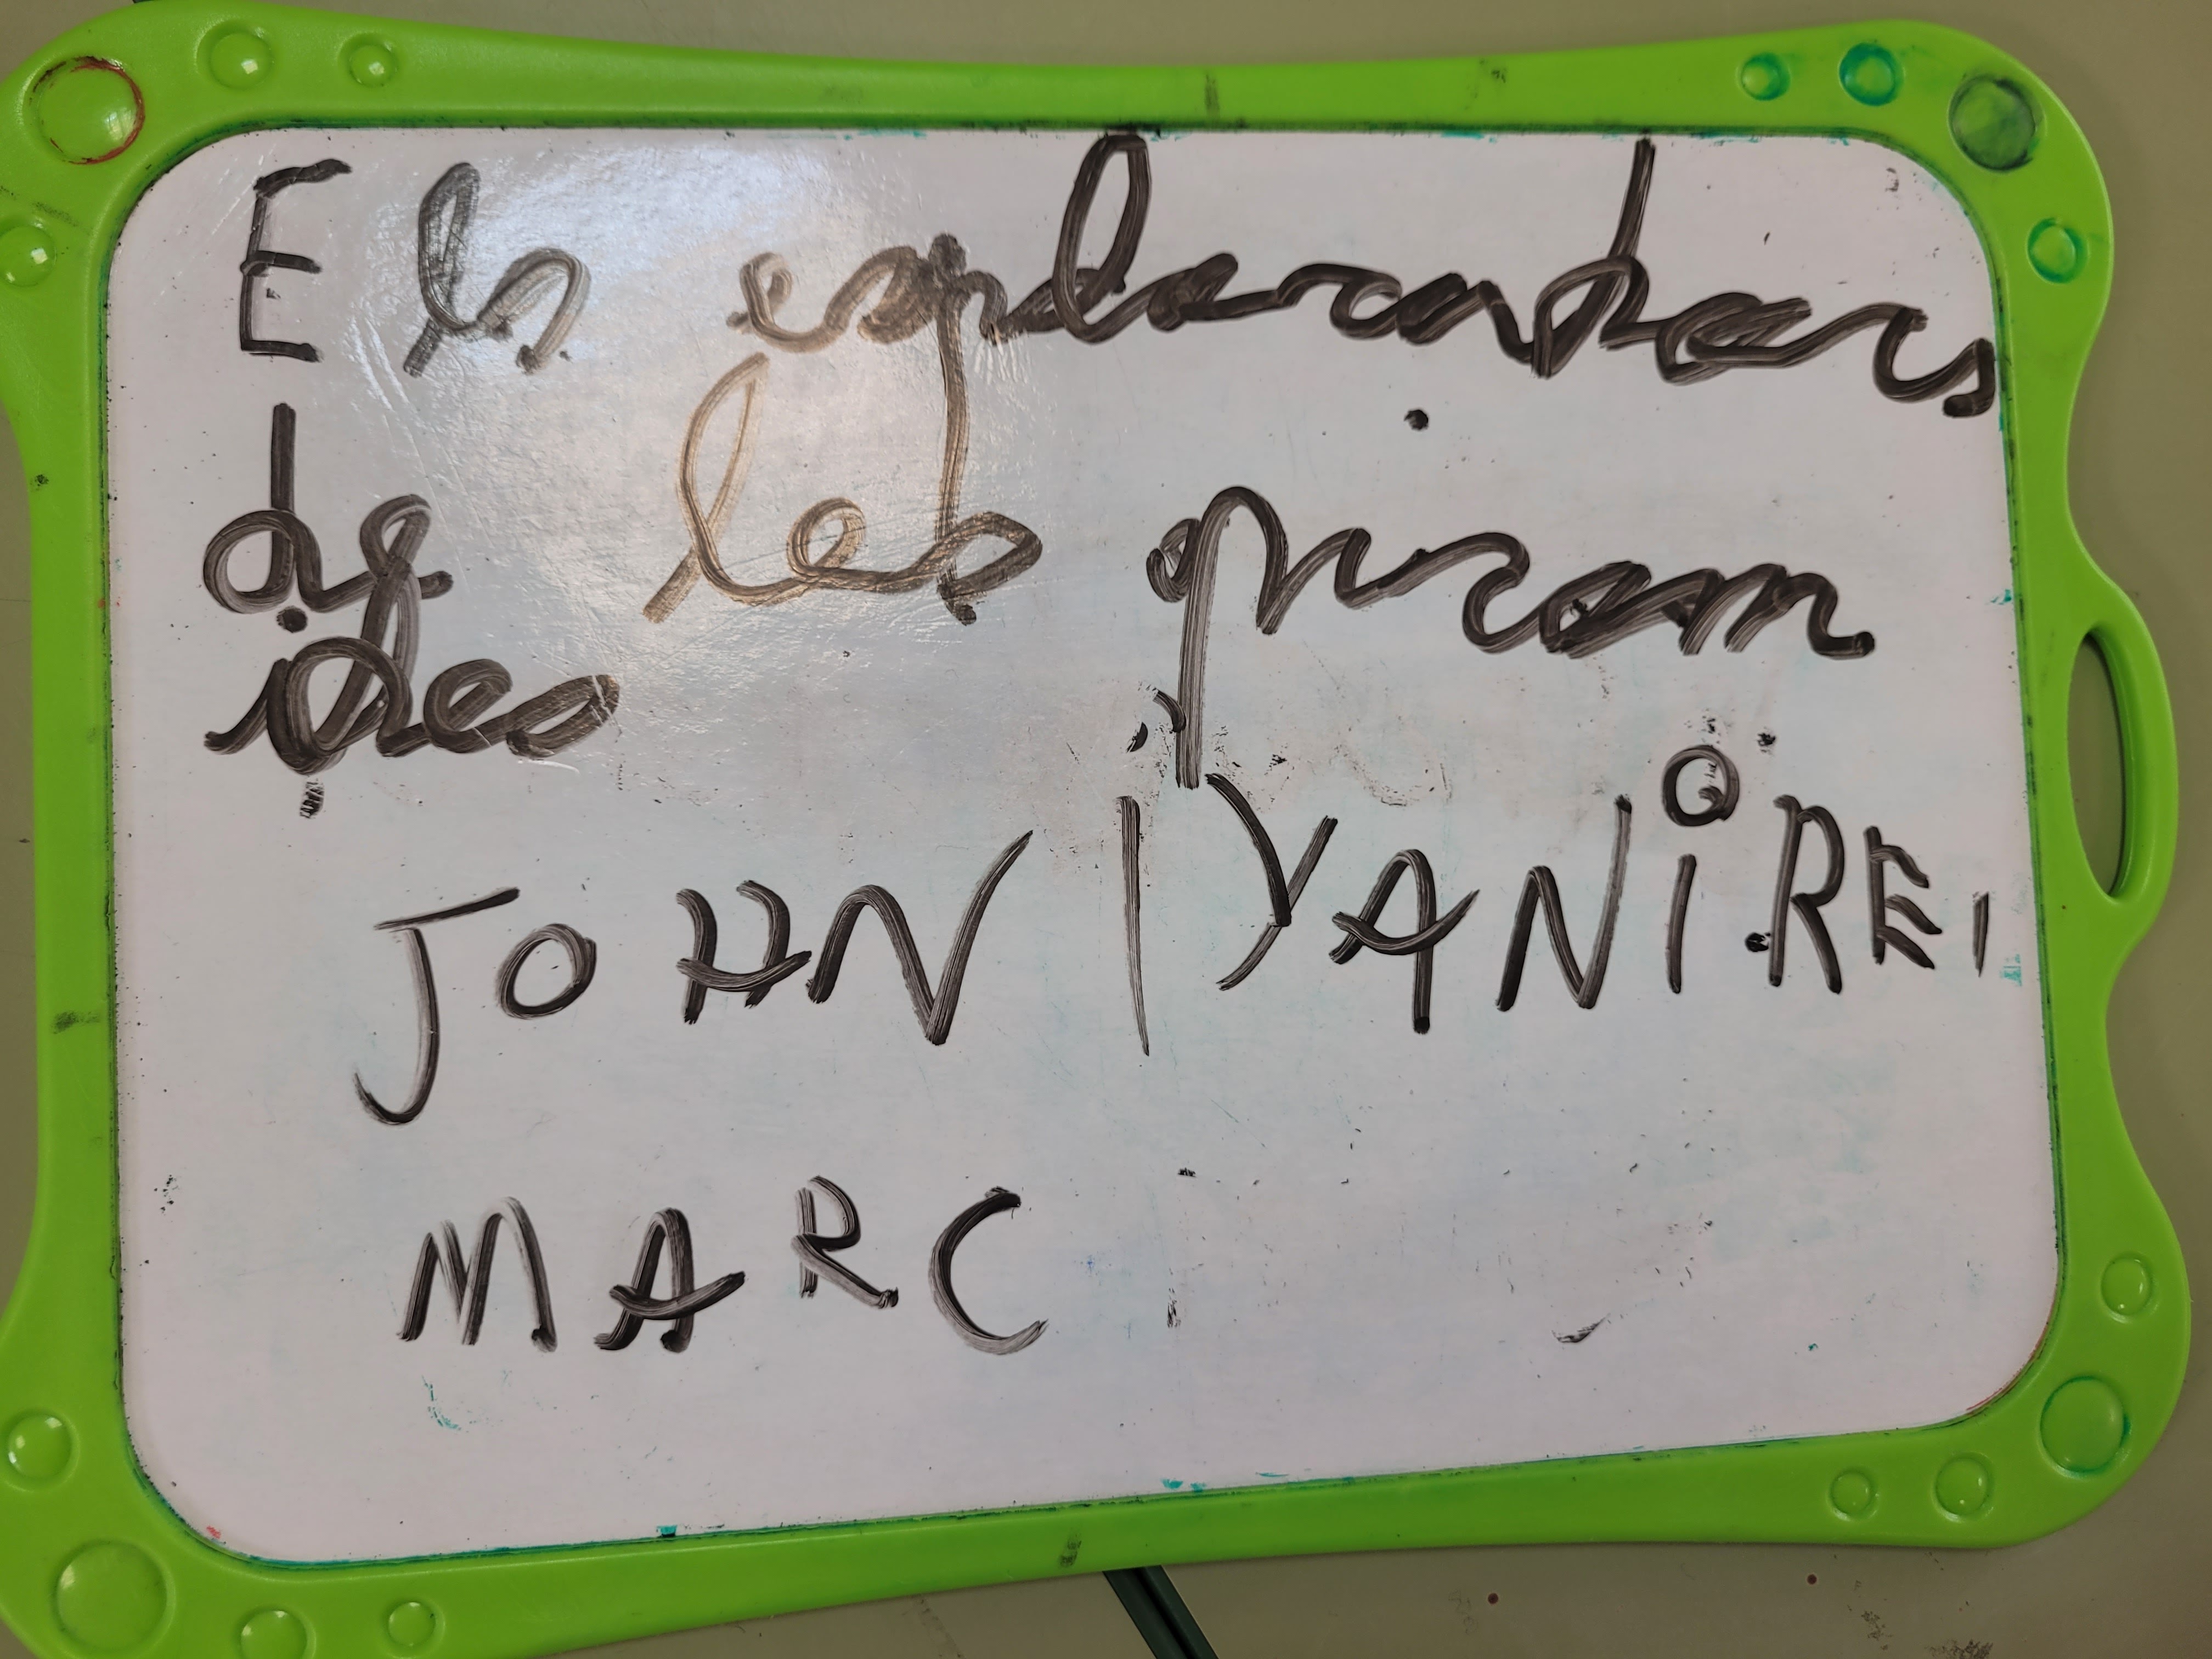 Els exploradors
de les piràm
ides
JOHN I YANiRE,
MARC